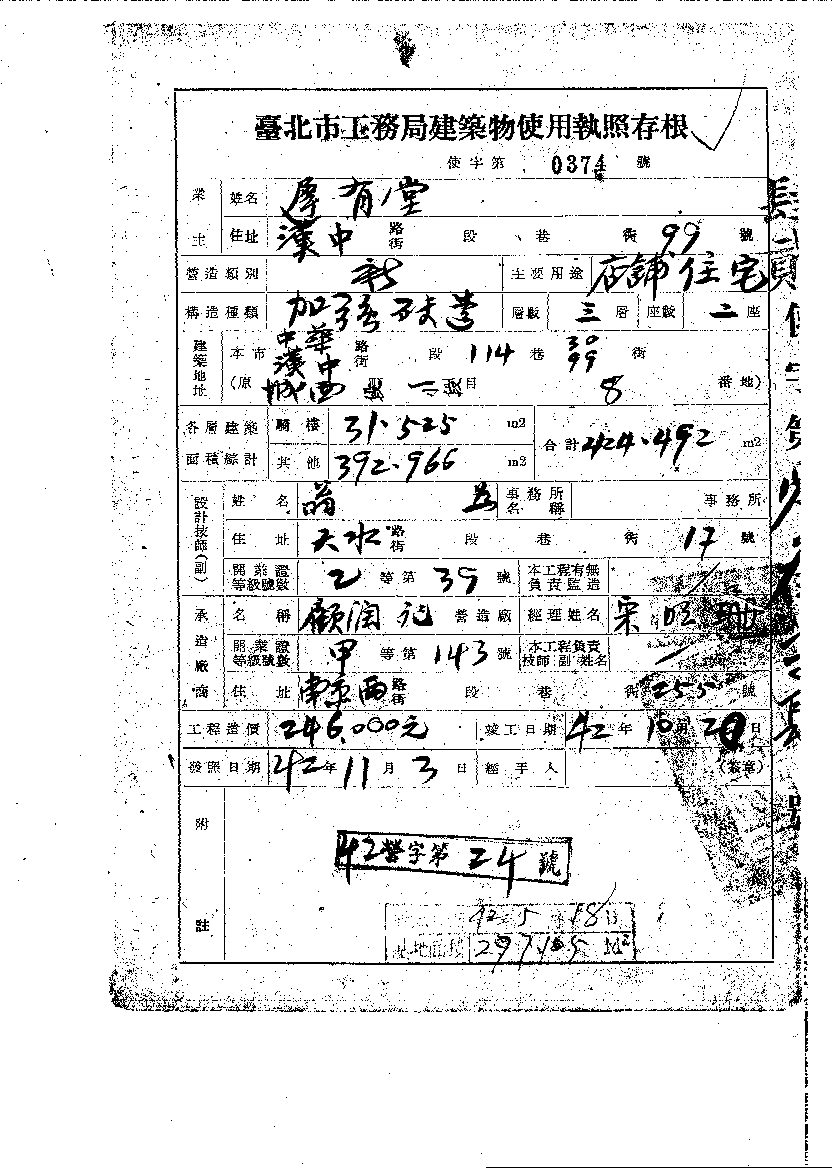 臺北市工務局建築物使用執照存根
使字第 0374 號
業主 姓名 有堂
住址 漢中 路街 段 巷 衖 99 號
營造類別 新 主要用途 店鋪住宅
構造種類 加強磚造 層數 三層 座數 二座
建築地址 本市 中華 漢中 路街 段 114 巷 30 99 衖
(原 城西 一 目 8 番地)
各層建築面積綜計 騎樓 31.525 m2 合計 424.492 m2
其他 392.966 m2
設計技師(副) 姓名 翁 事務所名稱 事務所
住址 天水 路街 段 巷 衖 17 號
開業證等級號數 乙 等第 39 號 本工程有無負責監造
承造廠商 名稱 顧潤記 營造廠 經理姓名
開業證等級號數 甲 等第 143 號 本工程負責技師副姓名
住址 南京西 路街 段 巷 衖 255 號
工程造價 246,000元 竣工日期 42 年 10 月 20 日
發照日期 42 年 11 月 3 日 經手人 (簽章)
附註
42營字第 24 號
42 5 18 日
基地面積 297.165 M2